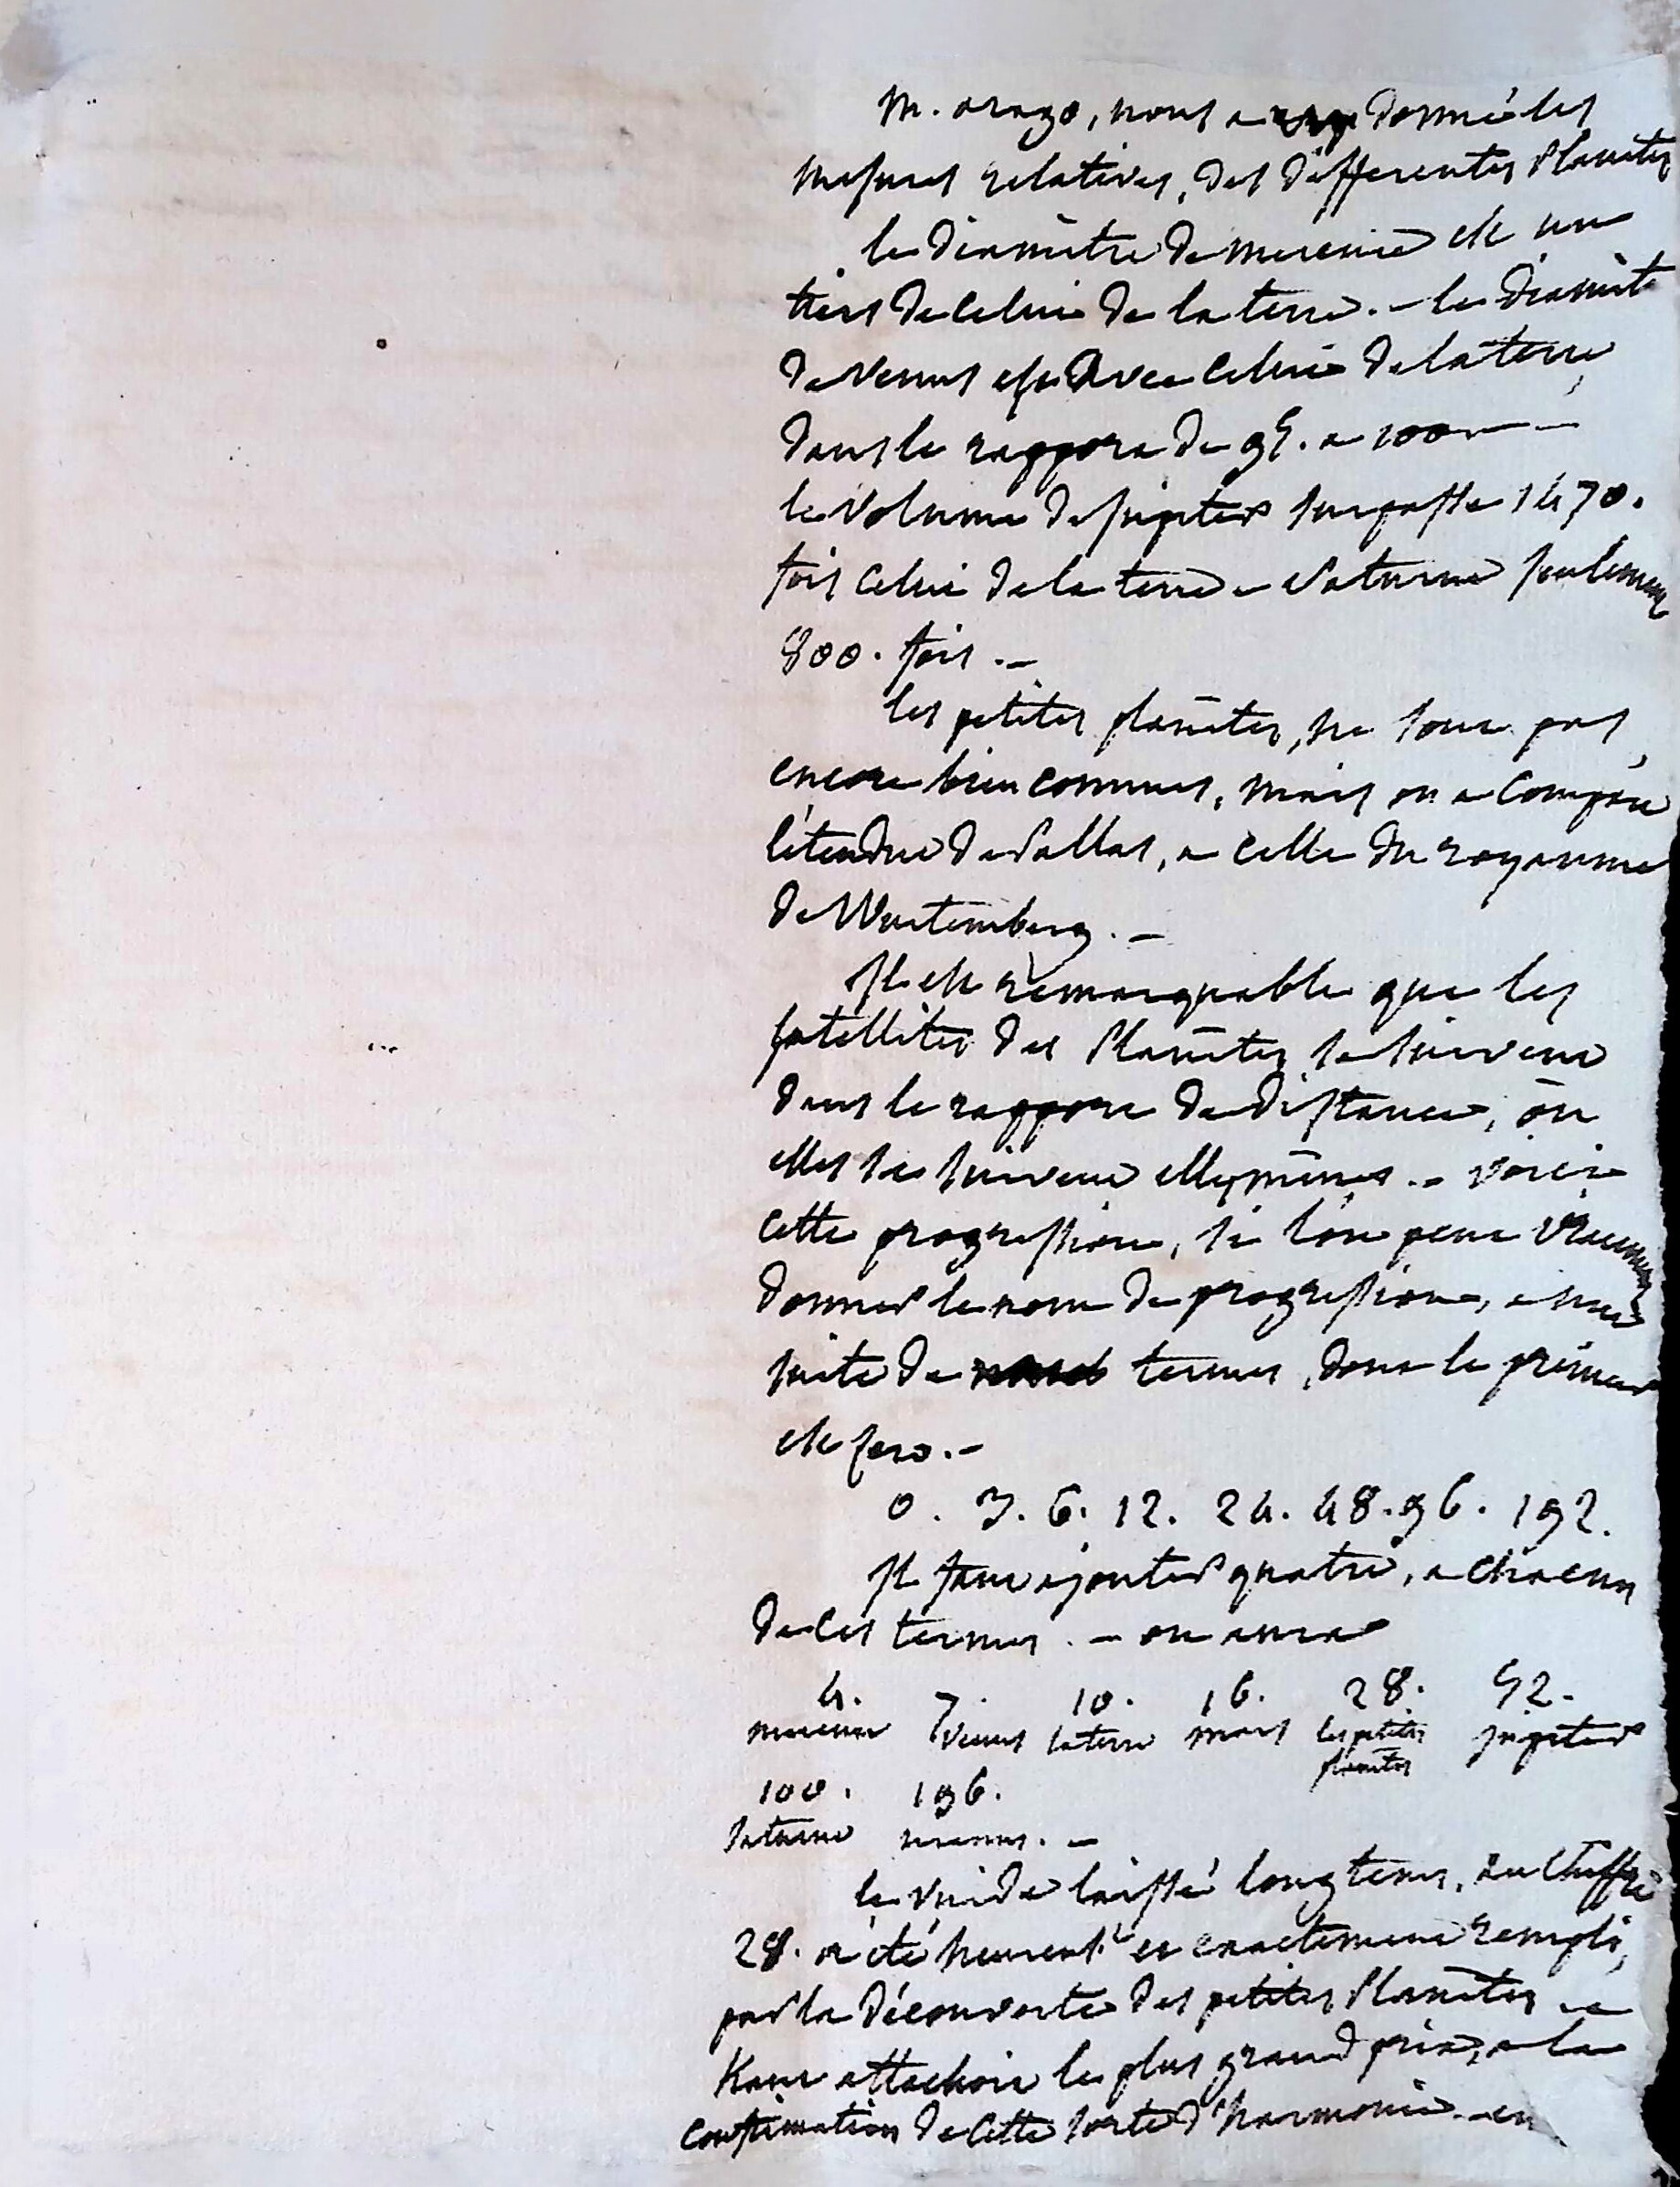 M. arago, nous a donné les
mesures relatives, des differentes Planetes
le diamètre de mercure est un
tiers de celui de la terre. - le diamêtre
de Venus est avec celui de la terre,
dans le rapport de 95. a 100 -
le Volume de Jupiter surpasse 1470.
fois celui de la terre - Saturne seulement
800. fois. -
les petites planètes, ne sont pas,
encore bien connues, mais on a comparé
l'étendue de Pallas, a celle du royaume
de Wurtemberg. -
Il est remarquable que les
satellites des Planètes se suivent
dans le rapport de distance, où
elles se suivent elles mêmes. - voici
cette progression, si l'on peut vraiment
donner le nom de progression, a une
suite de termes, dont le premier
est zero. -
0. 3. 6. 12. 24. 48. 96. 192.
Il faut ajouter quatre, a chacun
de ces termes. - on aura
4. 7. 10. 16. 28. 52.
mercure Venus la terre mars les petites planètes Jupiter
100. 196.
Saturne uranus. -
le vuide laissé longtems, au chiffre
28. a été heureust. et exactement rempli,
par la découverte des petites Planètes -
Kant attachoit le plus grand prix, a la
confirmation de cette sorte d'harmonie. - en